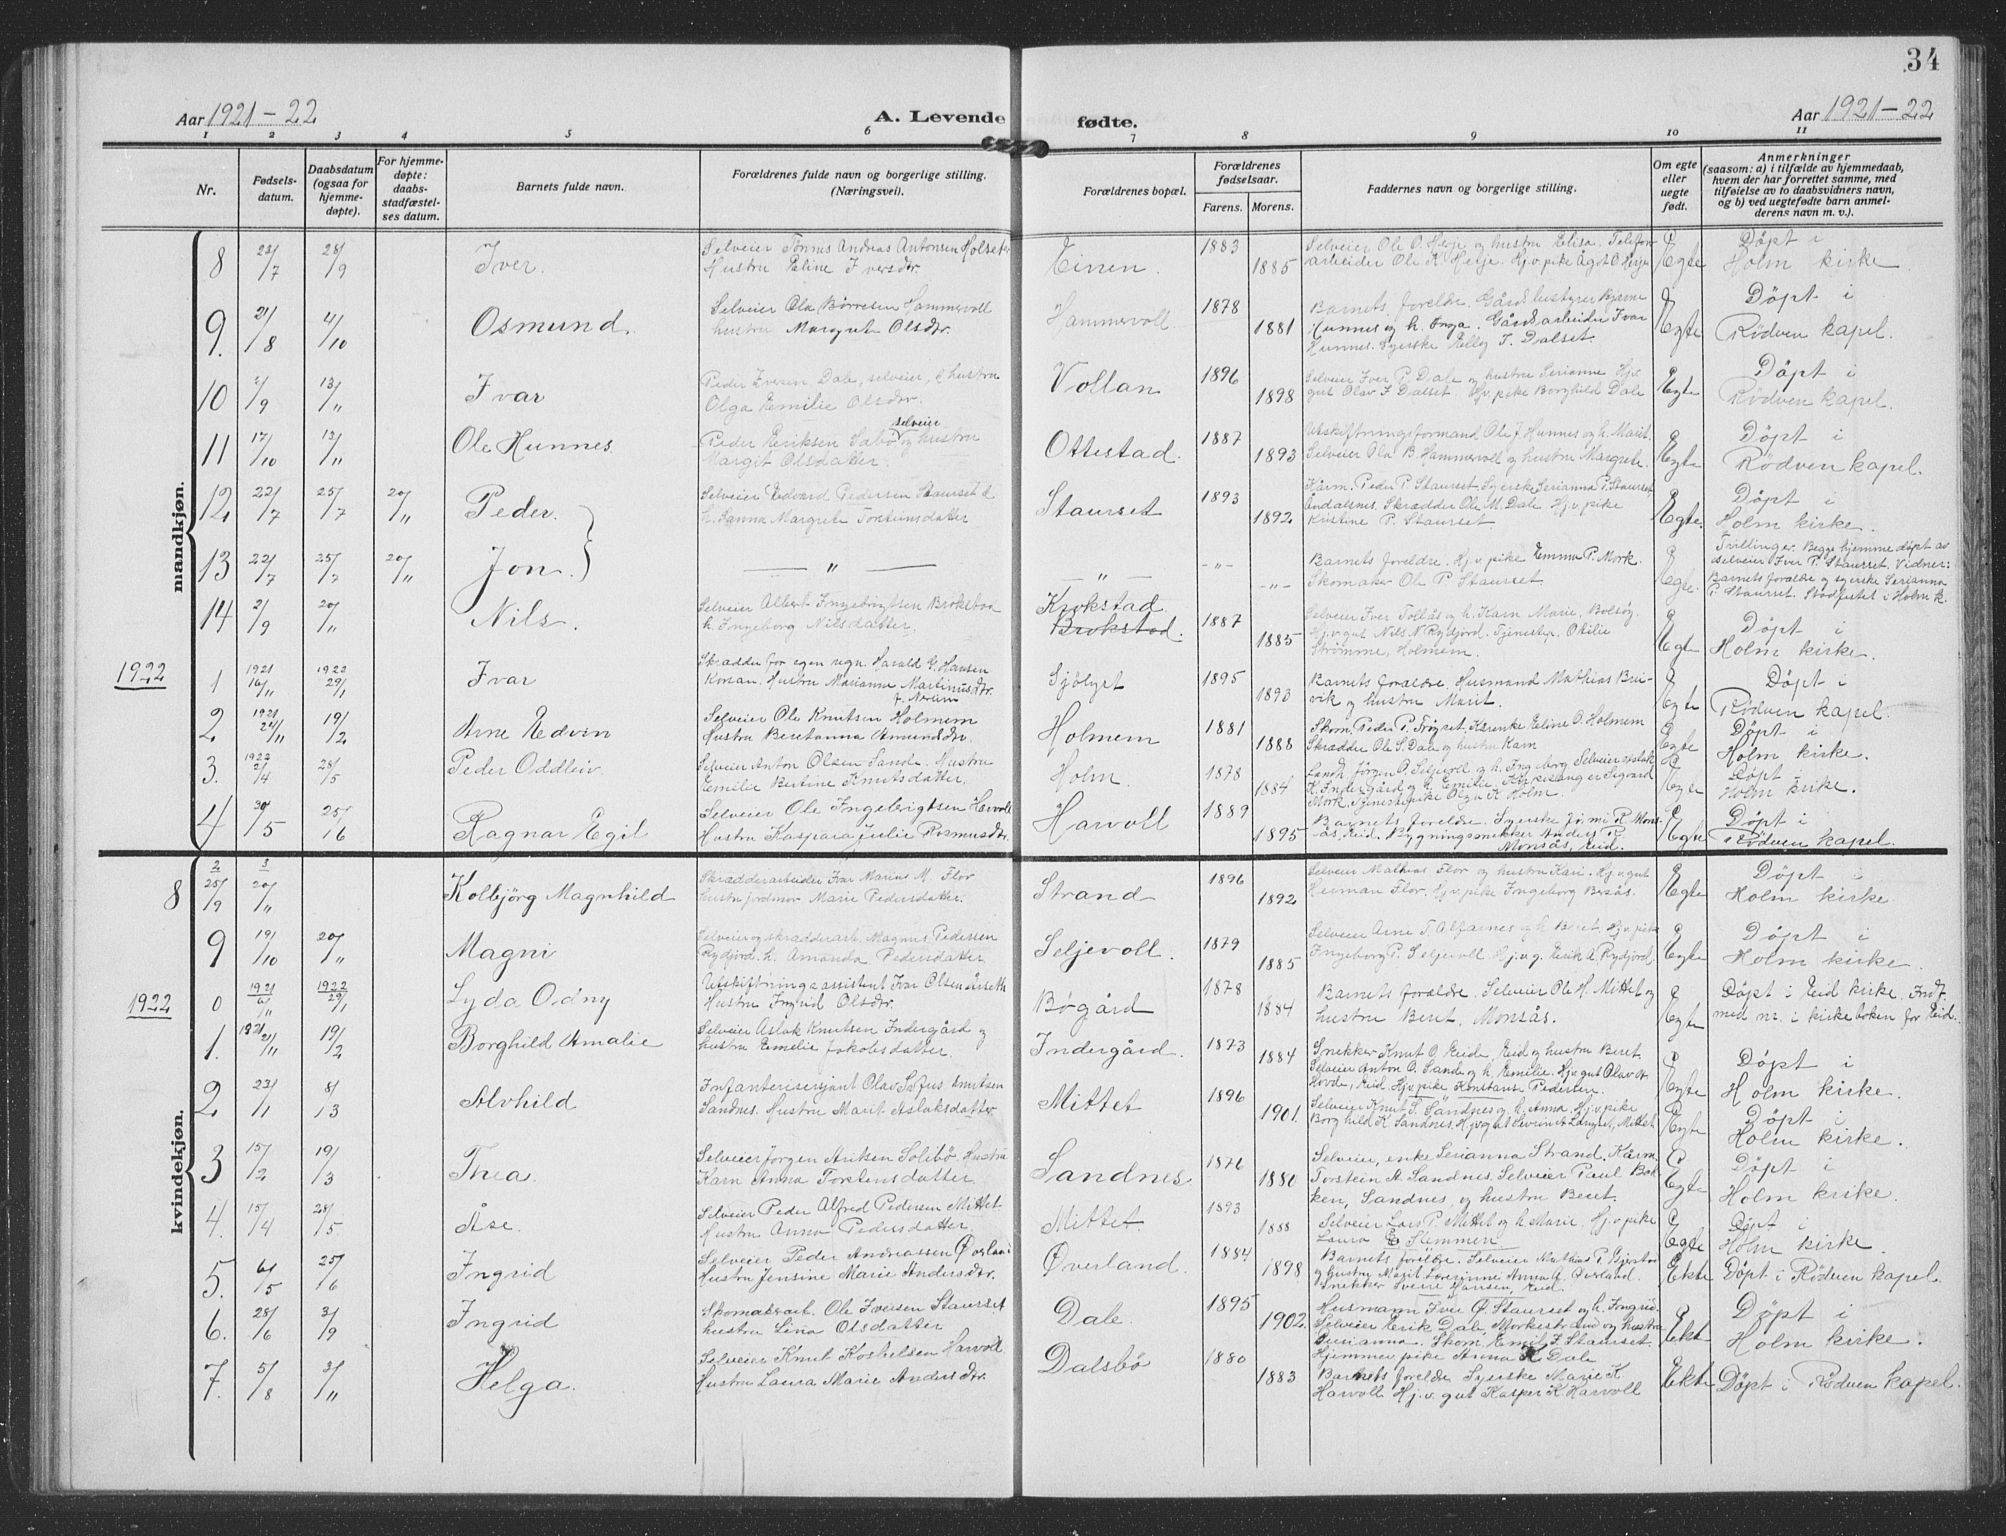 34
Aar 1921-22
A. Levende fødte.
Aar 1921-22
1 2 3 4 5 6 7 8 9 10 11
Nr.
Fødsels-
datum.
Daabsdatum
(ogsaa for
hjemme-
døpte).
For hjemme-
døpte:
daabs-
stadfæstel-
ses datum.
Barnets fulde navn.
Forældrenes fulde navn og borgerlige stilling.
(Næringsvei).
Forældrenes bopæl.
Forældrenes
fødselsaar.
Farens. Morens.
Faddernes navn og borgerlige stilling.
Om egte
eller
uegte
født.
Anmerkninger
(saasom: a) i tilfælde av hjemmedaab,
hvem der har forrettet samme, med
tilføielse av to daabsvidners navn,
og b) ved uegtefødte barn anmel-
derens navn m. v.).
mandkjøn.
8 22/7 28/9 Iver. Selveier Tönnes Andreas Antonsen Holseter Einen. 1883 Selveier Ole O. Herje og hustru Elisa. Telefon- Døpt i
Hustru Eline Iversdtr. 1885 arbeider Ole K. Herje. Hj.v. pike Agot O Herje Egte Holm kirke.
9. 21/8 4/10 Osmund. Selveier Ola Børresen Hammervoll Hammervoll 1878 Barnets forældre. Gårdsbestyrer Bjarne Døpt i
hustru Margrit Olsdtr. 1881 Hunnes og h. Inga. Gårdsarbeider Ivar Egte Rødven kapel.
Hunnes. Syerske Elley T. Dalset.
10 2/9 13/" Ivar Peder Iversen Dale, selveier, & hustru Vollan 1896 Selveier Iver P. Dale og hustru Serianne Hj.v. Døpt i
Olga Emilie Olsdtr. 1898 gut Olav I Dalset. Hj.v. pike Borghild Dale Egte Rødven kapel.
11 17/10 13/" Ole Hunnes. Peder Eriksen Sabø selveier og hustru Ottestad. 1887 Utskiftningsformand Ole J. Hunnes og h. Marit. Døpt i
Margit Olsdatter. 1893 Selveier Ola B. Hammervoll og hustru Margrete. Egte Rødven kapel.
12 22/7 25/7 20/" Peder. Selveier Edvard Pedersen Staurset & Staurset 1893 Kårm. Peder P. Staurset. Syerske Serianna P. Staurset Døpt i
h. Hanna Margrete Torsteinsdatter 1892 Åndalsnes. Skrædder Ole M. Dale Hj.v. pike Egte. Holm kirke.
Kristine P. Staurset
13 22/7 25/7 20/" Jon. — " — — " — -"- Barnets foreldre. Hj.v. pike Emma P. Mork. Tvillinger. Begge hjemme døpt av
-"- Skomaker Ole P. Staurset. Egte. selveier Iver P. Staurset. Vidner:
Barnets forældre og syerske Serianna
P. Staurset. Stadfestet i Holm k.
14 2/9 20/" Nils. Selveier Albert Ingebrigtsen Brokstad Krokstad 1887 Selveier Iver Tollås og h. Karn Marie, Bolsøy. Døpt i
h. Ingeborg Nilsdatter, Brokstad. 1885 Hj.v. gut Nils N Rydjord. Tjenestep. Otilie Egte Holm kirke.
Strømme, Holmem.
1922
1 1921 16/11 1922 29/1 Ivar Skrædder for egen regn. Harald G. Hansen Sjölyst 1895 Barnets forældre. Husmand Mathias Bru- Døpt i
Hustru Marianne Martinusdtr. 1893 vik og hustru Marit. Egte Rødven kapel.
2 1921 24/11 19/2 Arne Edvin Selveier Ole Knutsen Holmem Holmem 1881 Skom. Peder P. Frøyset. Eline O. Holmem Døpt i
Hustru Beretanna Amundsdtr. 1888 Skrædder Ole S. Dale og hustru Karn Egte Holm kirke.
3. 1922 2/4 28/5 Peder Oddleiv. Selveier Anton Olsen Sande. Hustru Holm. 1878 Jørgen O. Seljevoll og h. Ingeborg Selveier Aslak Døpt i
Emilie Bertine Knutsdatter. 1884 K. Indergård og h. Emilie Sigvard Egte Holm kirke.
Mork. Tjenestepike Olga K. Holm.
4 30/5 25/6 Ragnar Egil Selveier Ole Ingebrigtsen Harvoll Harvoll 1889 Barnets foreldre. Syerske K. Mons- Døpt i
Hustru Kaspara Julie Rasmusdtr. 1895 ås, Eid. Bygningssnekker Anders K. Egte Rødven kapel.
Monsås, Eid.
kvindekjøn.
8 25/9 20/" Kolbjörg Magnhild Skrædderarbeider Ivar Marius M. Flor Strand 1896 Selveier Mathias Flor og hustru Kari. Hj.v. gut Døpt i
hustru jordmor Marie Pedersdatter. 1892 Herman Flor. Hj.v. pike Ingeborg Bersås. Egte Holm kirke
9 19/10 20/" Magni Selveier og skrædderarb. Magnus Pedersen Seljevoll 1879 Selveier Arne T. Alfarnes og h. Beret. Hj.v. pike Døpt i
Rydjord. h. Amanda Pedersdatter 1885 Ingeborg P. Seljevoll Hj.v.g. Eirik A. Rydjord. Egte Holm kirke.
1922
0 1921 6/" 1922 29/1 Lyda Odny Utskiftningsassistent Ivar Olsen Bøgård 1878 Barnets forældre. Selveier Ole H. Mittet og Døpt i Eid kirke. Indf.
Hustru Ingrid Olsdtr. 1884 hustru Beret. Monsås. Egte med nr. i kirkeboken for Eid.
1. 1921 2/11 19/2 Borghild Amalie Selveier Aslak Knutsen Indergård og Indergård. 1873 Snekker Knut O. Eide, Eid og hustru Beret. Døpt i
hustru Emelie Jakobsdatter. 1884 Selveier Anton O. Sande og h. Emilie. Hj.v. gut Olav A Egte Holm kirke.
Hovde, Eid. Hj.v. pike Konstanse Pedersen
2 23/1 8/3 Alvhild Infanterisersjant Olav Sofus Knutsen Mittet 1896 Selveier Knut S. Sandnes og h. Anna. Hj.v. pike Døpt i
Sandnes. Hustru Marit Aslaksdatter 1901. Borghild K Sandnes. Hj.v. gut Severin A Langset, Mittet Egte Holm kirke.
3 15/2 19/3 Thea. Selveier Jørgen Eriksen Solibø Hustru Sandnes 1876 Selveier, enke Serianna Strand. Kårm. Døpt i
Karn Anna Torstensdatter 1880 Torstein A. Sandnes. Selveier Paul Bak- Egte Holm kirke.
ken, Sandnes, og hustru Beret.
4. 15/4 28/5 Åse. Selveier Peder Alfred Pedersen Mittet Mittet 1893 Selveier Lars P. Mittet og h. Marie. Hj.v. pike Døpt i
Hustru Anna Pedersdatter. 1888 Laura E Flemmen Egte Holm kirke.
5. 6/5 25/6 Ingrid Selveier Peder Andreassen Øverland Øverland. 1884 Barnets forældre. Selveier Mathias P. Gjerstad
Hustru Jensine Marie Andersdtr. 1898 og hustru Marit Anna G. Øverland. Ekte Døpt i Rødven kapel.
Snekker Sverre Hansen, Eid.
6. 28/6 3/9 Ingrid Skomakerarb. Ole Iversen Staurset Dale. 1895 Husmann Iver Ø. Staurset og h. Ingrid. Døpt i
hustru Lina Olsdatter 1902. Selveier Eirik Dale Morkestrand og hustru Ekte Holm kirke.
Serianna. Skom. Emil I. Staurset.
Hjemmev. pike Anna K Dale
7. 5/8 3/" Helga. Selveier Knut Harvoll Dalsbø 1880
Hustru Laura Marie Andersdtr. 1883 Barnets forelde Syerske Marie K. Ekte Døpt i Rødven kapel.
Harvoll Hj.v. gut Kasper K Harvoll